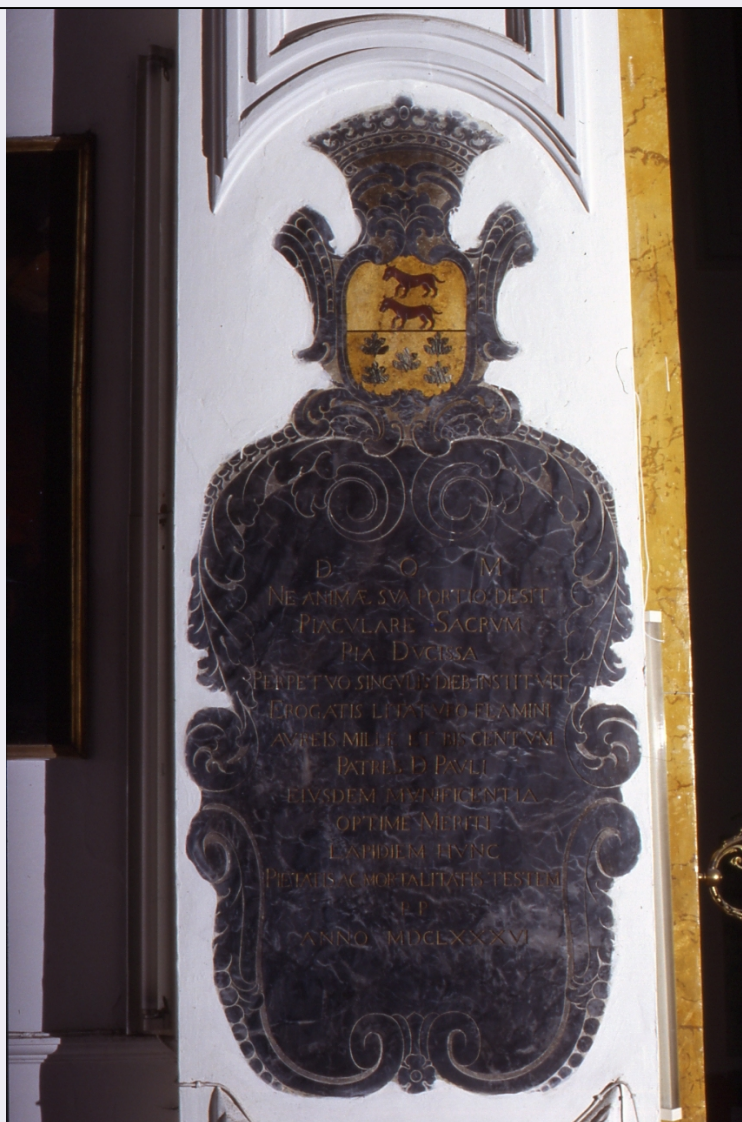 D O M
NE ANIMÆ SVA PORTIO DESIT
PIACVLARE SACRVM
PIA DVCRSA
PERPETVO SINGVLIS DIEB INSTITVIT
EROGATIS
AVREIS MILLE ET BISCENTVM
PATRES D PAVLI
EIVSDEM MVNIFICENTIA
OPTIME MERITI
LAPIDEM HVNC
PIETATIS AC MORTALITATIS TESTEM
P P
ANNO MDCLXXXVI